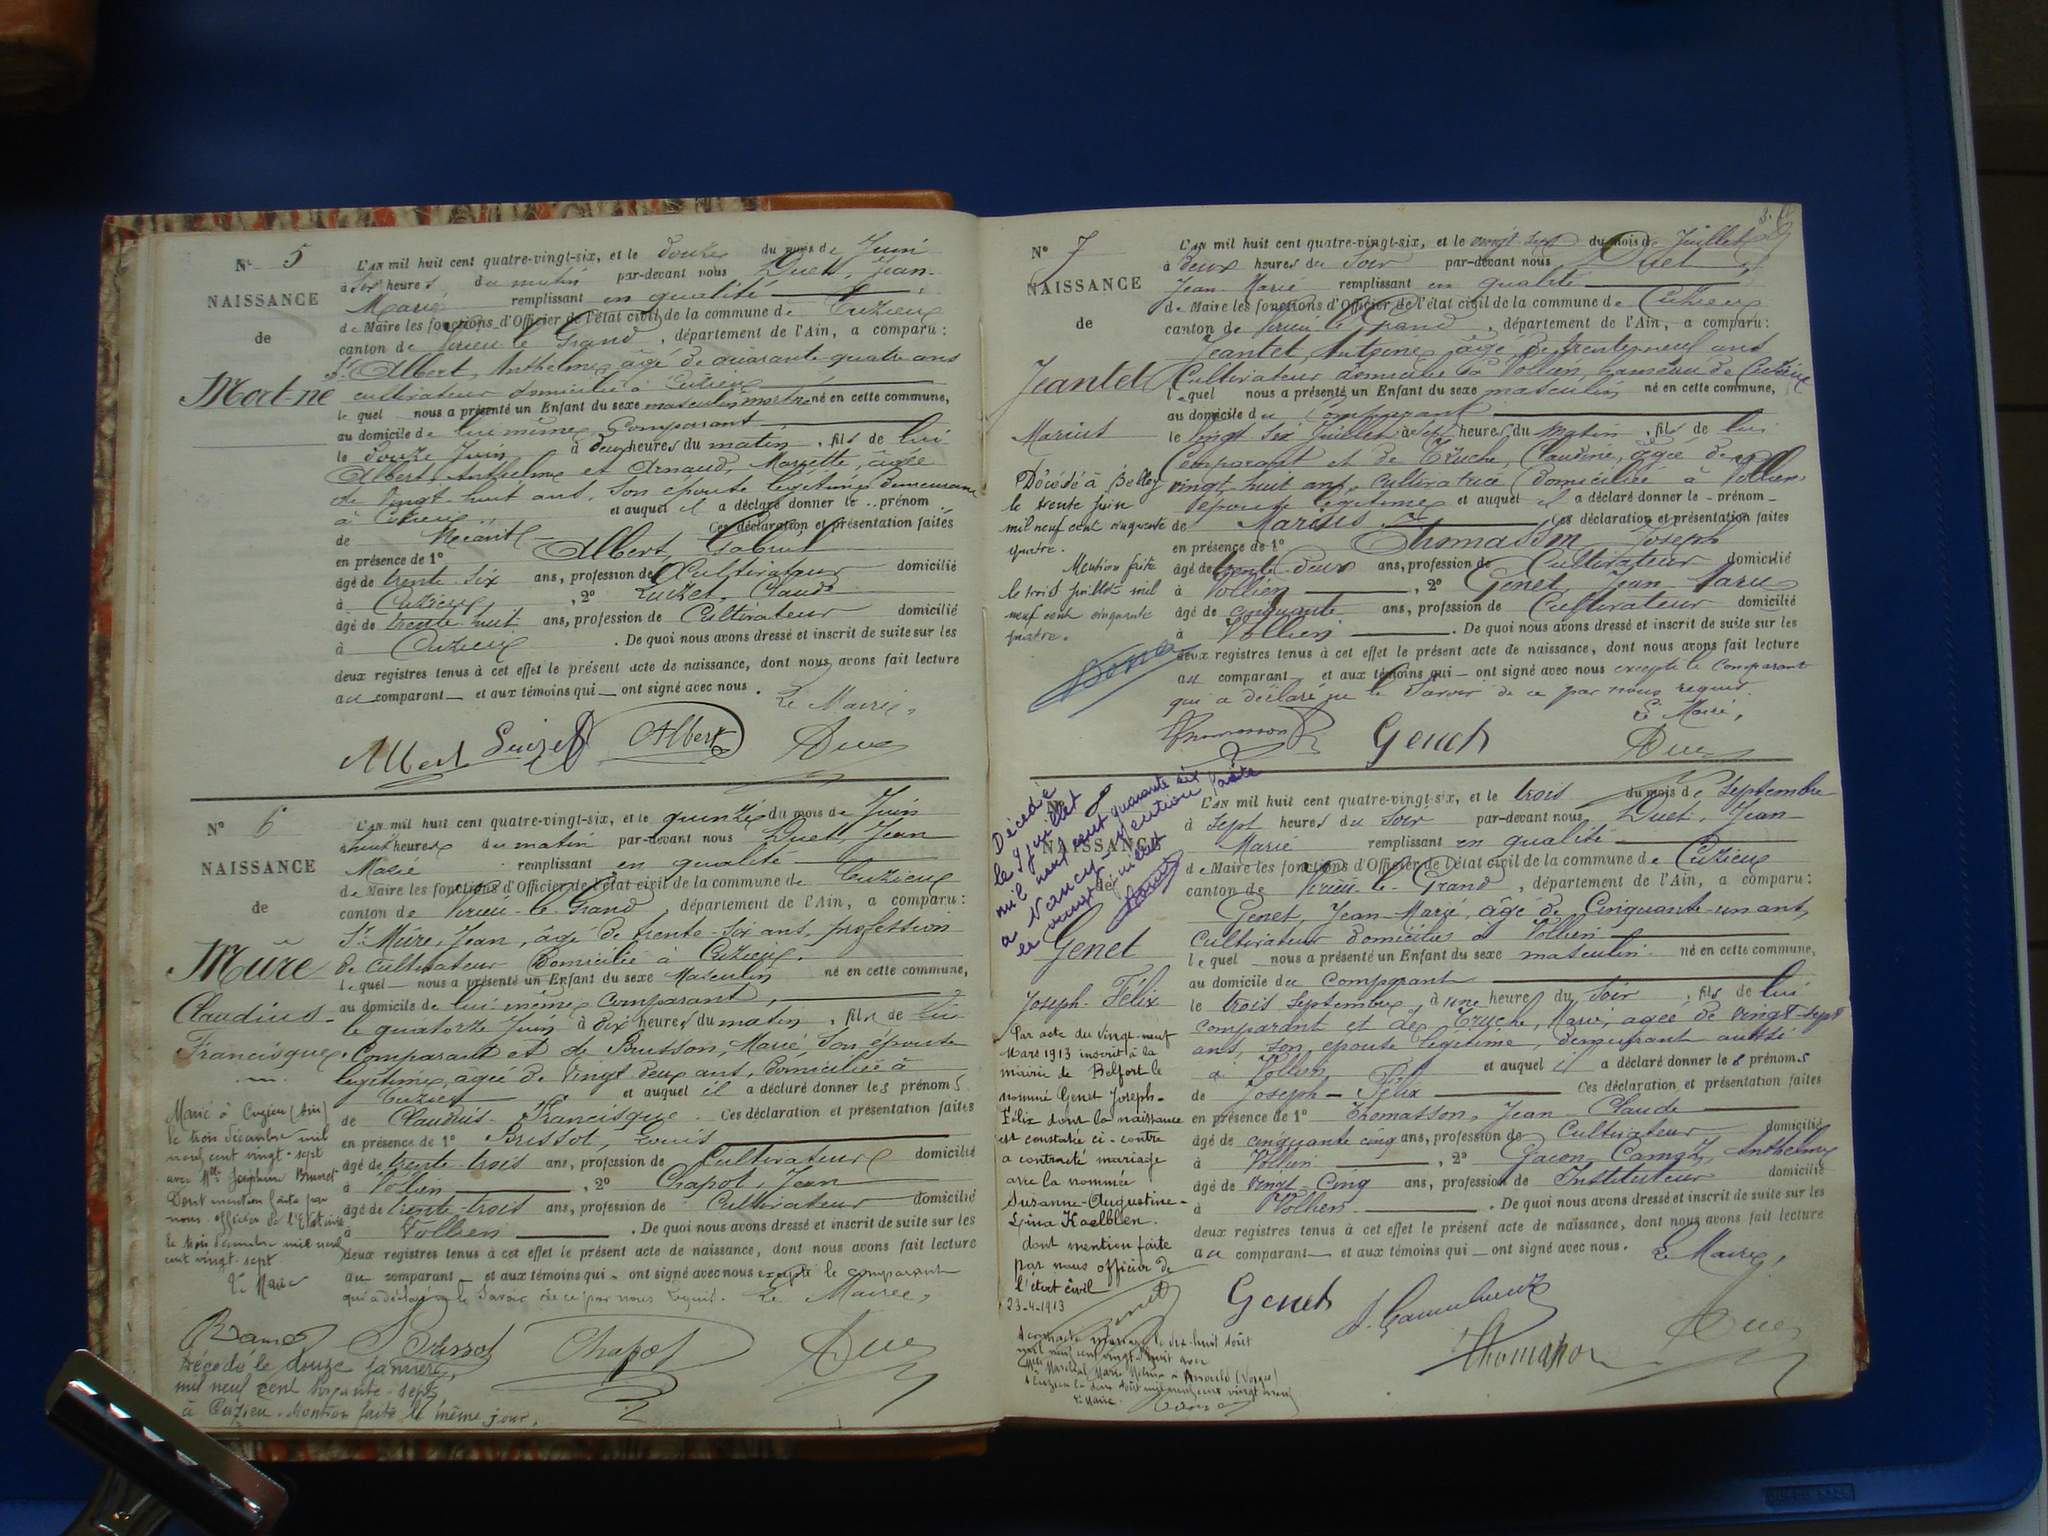 N° 5
NAISSANCE
de
Mort-né
L'AN mil huit cent quatre-vingt-six, et le douze du mois de Juin
à six heures du matin par-devant nous Duet, Jean-
Marie remplissant en qualité
de Maire les fonctions d'Officier de l'état civil de la commune de Cuzieu
canton de Virieu-le-Grand, département de l'Ain, a comparu :
Sr Albert, Anthelme, âgé de quarante quatre ans
cultivateur domicilié à Cuzieu
lequel nous a présenté un Enfant du sexe masculin mort né né en cette commune,
au domicile de lui même Comparant
le douze Juin à deux heures du matin, fils de lui
Albert, Anthelme et Arnaud, Mariette, âgée
de vingt-huit ans, son épouse légitime demeurant
à Cuzieu et auquel il a déclaré donner le prénom
de Néant Ces déclaration et présentation faites
en présence de 1° Albert, Gabriel
âgé de trente-six ans, profession de Cultivateur domicilié
à Cuzieu, 2° Luizet, Claude
âgé de trente-huit ans, profession de Cultivateur domicilié
à Cuzieu. De quoi nous avons dressé et inscrit de suite sur les
deux registres tenus à cet effet le présent acte de naissance, dont nous avons fait lecture
au comparant et aux témoins qui ont signé avec nous.
Le Maire,
Albert Luizet Albert Duet
N° 6
NAISSANCE
de
Mûre
Claudius-
Francisque
L'AN mil huit cent quatre-vingt-six, et le quinze du mois de Juin
à huit heures du matin par-devant nous Duet, Jean
Marie remplissant en qualité
de Maire les fonctions d'Officier de l'état civil de la commune de Cuzieu
canton de Virieu-le-Grand, département de l'Ain, a comparu :
Sr Mûre, Jean, âgé de trente-six ans, profession
de cultivateur domicilié à Cuzieu.
lequel nous a présenté un Enfant du sexe Masculin né en cette commune,
au domicile de lui-même comparant,
le quatorze Juin à dix heures du matin, fils de lui
Comparant et de Buisson, Marie, son épouse
légitime, âgée de vingt deux ans, domiciliée à
Cuzieu et auquel il a déclaré donner les prénoms
de Claudius-Francisque. Ces déclaration et présentation faites
en présence de 1° Brissot, Louis
âgé de trente-trois ans, profession de Cultivateur domicilié
à Vollien, 2° Chapot, Jean
âgé de trente-trois ans, profession de Cultivateur domicilié
à Vollien. De quoi nous avons dressé et inscrit de suite sur les
deux registres tenus à cet effet le présent acte de naissance, dont nous avons fait lecture
au comparant et aux témoins qui ont signé avec nous excepté le comparant
qui a déclaré ne le savoir de ce par nous requis. Le Maire,
Marié à Cuzieu (Ain)
le trois décembre mil
neuf cent vingt-sept
avec Mlle Joséphine Brunet
Dont mention faite par
nous officier de l'Etat civil
le trois décembre mil neuf
cent vingt sept
Le Maire
Brissot Chapot Duet
Décédé le douze janvier
mil neuf cent soixante-sept
à Cuzieu. Mention faite le même jour.
N° 7
NAISSANCE
de
Jeantet
Marius
L'AN mil huit cent quatre-vingt-six, et le vingt sept du mois de Juillet
à deux heures du soir par-devant nous Duet
Jean-Marie remplissant en qualité
de Maire les fonctions d'Officier de l'état civil de la commune de Cuzieu
canton de Virieu-le-Grand, département de l'Ain, a comparu :
Jeantet, Antoine, âgé de trente-neuf ans
Cultivateur domicilié à Vollien, hameau de Cuzieu
lequel nous a présenté un Enfant du sexe masculin né en cette commune,
au domicile du Comparant
le vingt six Juillet à sept heures du matin, fils de lui
Comparant et de Truche, Claudine, âgée de
vingt huit ans, cultivatrice domiciliée à Vollien,
épouse légitime et auquel il a déclaré donner le prénom
de Marius Ces déclaration et présentation faites
en présence de 1° Thomasson Joseph
âgé de trente-deux ans, profession de Cultivateur domicilié
à Vollien, 2° Genet, Jean-Marie
âgé de cinquante ans, profession de Cultivateur domicilié
à Vollien. De quoi nous avons dressé et inscrit de suite sur les
deux registres tenus à cet effet le présent acte de naissance, dont nous avons fait lecture
au comparant et aux témoins qui ont signé avec nous excepté le comparant
qui a déclaré ne le savoir de ce par nous requis.
Le Maire,
Décédé à Belley
le trente juin
mil neuf cent cinquante
quatre.
Mention faite
le trois juillet mil
neuf cent cinquante
quatre.
Thomasson Genet Duet
N° 8
NAISSANCE
de
Genet
Joseph-Félix
Décédé
le 9 juillet
mil neuf cent quarante six
à Nancy - Mention faite
le vingt juillet
L'AN mil huit cent quatre-vingt-six, et le trois du mois de Septembre
à sept heures du soir par-devant nous Duet, Jean-
Marie remplissant en qualité
de Maire les fonctions d'Officier de l'état civil de la commune de Cuzieu
canton de Virieu-le-Grand, département de l'Ain, a comparu :
Genet, Jean-Marie, âgé de Cinquante-un ans,
cultivateur domicilié à Vollien
lequel nous a présenté un Enfant du sexe masculin né en cette commune,
au domicile du comparant
le trois septembre, à une heure du soir, fils de lui
comparant et de Truche, Marie, agée de vingt-sept
ans, son épouse légitime, demeurant aussi
à Vollien et auquel il a déclaré donner les prénoms
de Joseph-Félix Ces déclaration et présentation faites
en présence de 1° Thomasson, Jean-Claude
âgé de cinquante cinq ans, profession de Cultivateur domicilié
à Vollien, 2° Anthelme
âgé de vingt-cinq ans, profession de Instituteur domicilié
à Vollien. De quoi nous avons dressé et inscrit de suite sur les
deux registres tenus à cet effet le présent acte de naissance, dont nous avons fait lecture
au comparant et aux témoins qui ont signé avec nous. Le Maire,
Par acte du vingt-neuf
Mars 1913 inscrit à la
mairie de Belfort le
nommé Genet Joseph-
Félix dont la naissance
est constatée ci-contre
a contracté mariage
avec la nommée
Susanne-Augustine-
Lina Kaelblen.
dont mention faite
par nous officier de
l'état civil
23-4-1913
Genet Thomasson Duet
A contracté mariage le dix-huit août
mil neuf cent vingt-huit avec
Marie à Anould (Vosges)
Le Maire.